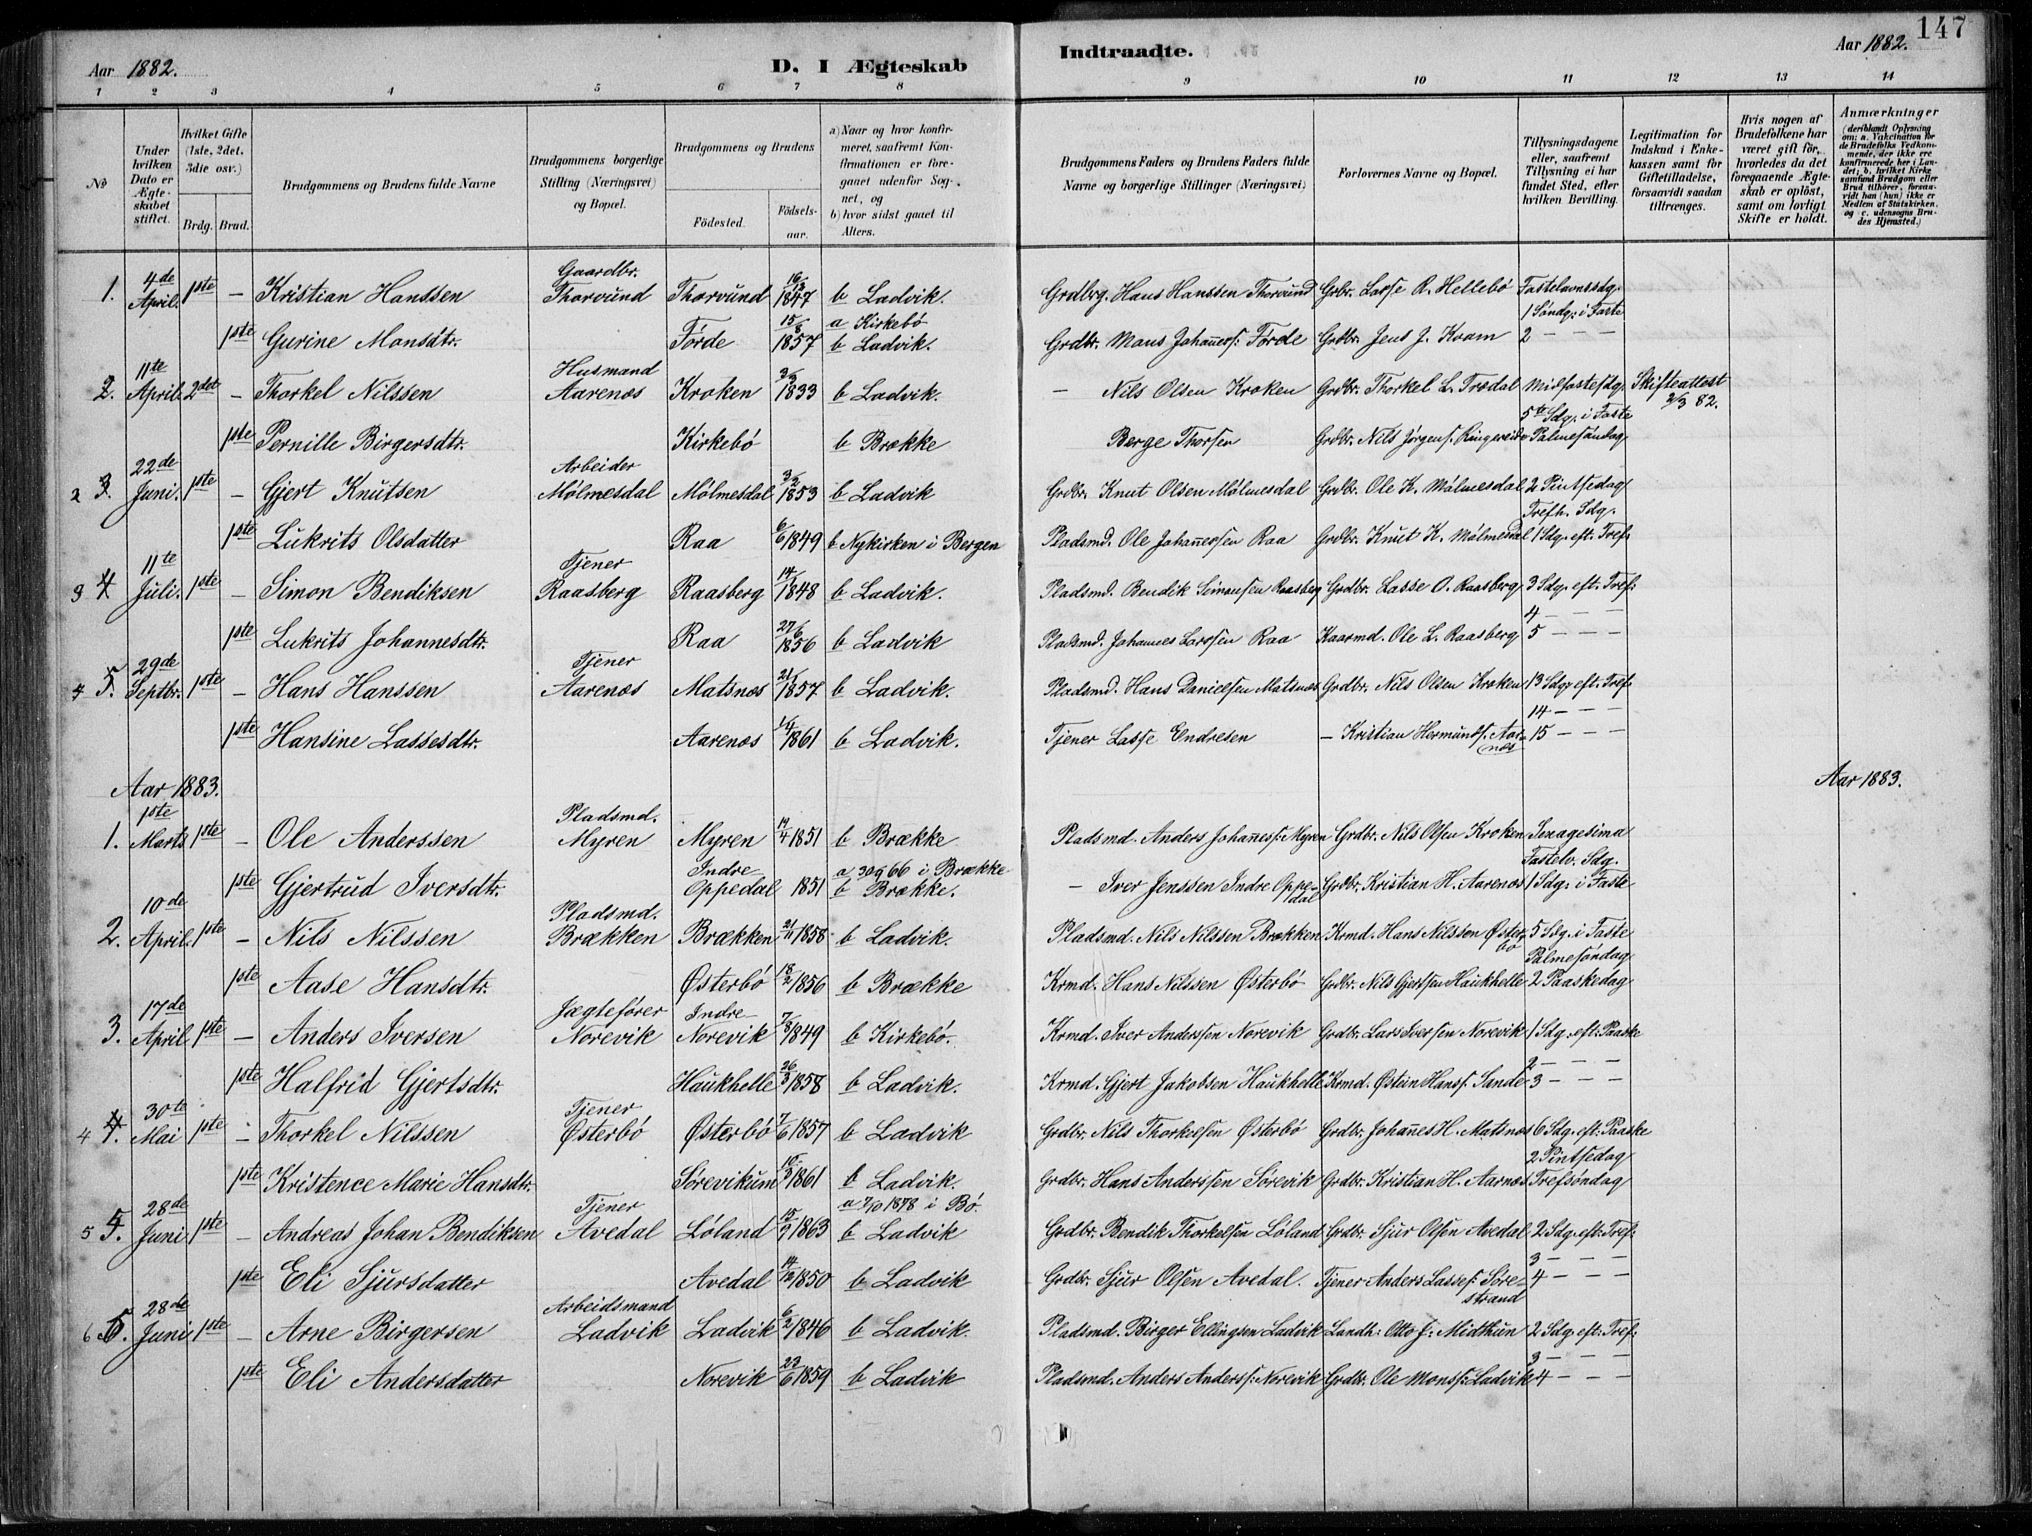 147
Aar 1882.
D. I Ægteskab
Indtraadte.
Aar 1882.
1 2 3 4 5 6 7 8 9 10 11 12 13 14
No
Under hvilken Dato er Ægteskabet stiftet.
Hvilket Gifte (1ste, 2det, 3die osv.)
Brdg. Brud.
Brudgommens og Brudens fulde Navne
Brudgommens borgerlige Stilling (Næringsvei) og Bopæl.
Brudgommens og Brudens
Födested.
Födselsaar.
a) Naar og hvor konfirmeret, saafremt Konfirmationen er foregaaet udenfor Sognet, og
b) hvor sidst gaaet til Alters.
Brudgommens Faders og Brudens Faders fulde Navne og borgerlige Stillinger (Næringsvei)
Forlovernes Navne og Bopæl.
Tillysningsdagene eller, saafremt Tillysning ei har fundet Sted, efter hvilken Bevilling.
Legitimation for Indskud i Enkekassen samt for Giftetilladelse, forsaavidt saadan tiltrænges.
Hvis nogen af Brudefolkene har været gift för, hvorledes da det foregaaende Ægteskab er oplöst, samt om lovligt Skifte er holdt.
Anmærkninger
(deriblandt Oplysning om: a. Vakcination for de Brudefolks Vedkommende, der ikke ere konfirmerede her i Landet; b. hvilket Kirkesamfund Brudgom eller Brud tilhörer, forsaavidt han (hun) ikke er Medlem af Statskirken, og c. udensogns Brudes Hjemsted.)
1. 4de April. 1ste – Kristian Hanssen Gaardbr. Thorvund Thorvund 16/2 1847 b Ladvik. Grdbrg. Hans Hanssen Thorvund Grbr. Lasse A. Hellebø Fastelavnssdg.
1 Søndg. i Faste
1ste Gurine Monsdtr. Førde 15/8 1857 a Kirkebø b Ladvik. Grdbr. Mons Johañess: Førde Grdbr. Jens J. Kvam 2 – – –
2. 11te April. 2det – Thorkel Nilssen Husmand Aarenæs Kroken 3/3 1833 b Ladvik. – Nils Olsen Kroken Grdbr. Thorkel L. Trædal Midfastesdg. Skifteattest 2/3 82.
5te Sdg. i Faste
1ste Pernille Birgersdtr. Kirkebø b Brække Berge Thorsen Grdbr. Nils Jørgens. Ringereide Palmesøndag
2 3. 22de Juni. 1ste – Gjert Knutsen Arbeider Mølmesdal Mølmesdal 3/2 1853 b Ladvik Grdbr. Knut Olsen Mølmesdal Grdbr. Ole K. Mølmesdal 2 Pintsedag
Trefh. Sdg.
1ste Lukrits Olsdatter Raa 6/6 1849 b Nykirken i Bergen Pladsmd. Ole Johañessen Raa Grdbr. Knut K. Mølmesdal 1 Sdg. eft. Tref:
3 4 11te Juli. 1ste – Simon Bendiksen Tjener Raasberg Raasberg 14/3 1848 b Ladvik. Pladsmd. Bendik Simonsen Raasberg Grdbr. Lasse O. Raasberg 3 Sdg. eft. Tref:
4 – – –
1ste Lukrits Johannesdtr. Raa 27/6 1856 b Ladvik Pladsmd. Johannes Larssen Raa Kaarmd. Ole L. Raasberg 5 – – –
4 5. 29de Septbr. 1ste – Hans Hanssen Tjener Aarenæs Matsnæs 21/1 1857 b Ladvik. Pladsmd. Hans Danielsen Matsnæs Grdbr. Nils Olsen Kroken 13 Sdg. eft. Tref.
14 – – –
1ste Hansine Lassesdtr. Aarenæs 16/4 1861 b Ladvik. Tjener Lasse Endresen – Kristian Hermunds. Aarnæs 15 – – –
Aar 1883.
Aar 1883.
1. 1ste Marts 1ste – Ole Anderssen Pladsmd. Myren Myren 14/4 1851 b Brække Pladsmd. Anders Johañess: Myren Grdbr. Nils Olsen Kroken Sexagesima
Fastelv. Sdg.
1ste Gjertrud Iversdtr. Indre Oppedal 1851 a 30/9 66 i Brække b Brække. – Iver Jenssen Indre Oppedal Grdbr. Kristian H. Aarenæs 1 Sdg. i Faste
2. 10de April. 1ste – Nils Nilssen Pladsmd. Brækken Brækken 21/11 1858 b Ladvik. Pladsmd. Nils Nilssen Brækken Krmd. Hans Nilssen Østerbo 5 Sdg. i Faste
Palmesøndag
1ste Aase Hansdtr. Østerbö 18/2 1856 b Brække Krmd. Hans Nilssen Østerbö Grdbr. Nils Gjertsen Haukhelle 2 Paaskedag
3. 17de April 1ste – Anders Iversen Jægtefører Norevik Indre Norevik 7/8 1849 b Kirkebö. Krmd. Iver Anderssen Norevik Grdbr. Lars Iverssen Norevik 1 Sdg. eft. Paaske
2 – – –
1ste Halfrid Gjertsdtr. Haukhelle 26/3 1858 b Ladvik. Krmd. Gjert Jakobsen Haukhelle Krmd. Østein Hans: Sande 3 – – –
4 4. 30te Mai 1ste – Thorkel Nilssen Tjener Østerbö Østerbö 7/6 1857 b Ladvik Grdbr. Nils Thorkelsen Østerbö Grdbr. Johañes H. Matsnæs 6 Sdg. eft: Paaske
2 Pintsedag
1ste Kristence Marie Hansdtr. Sørevikum 10/3 1861 b Ladvik. Grdbr. Hans Anderssen Sørevik Grdbr. Kristian H. Aarnæs Trefsøndag
5 5. 28de Juni 1ste – Andreas Johan Bendiksen Tjener Avedal Løland 15/9 1863 a 7/10 1878 i Bö. b Ladvik Grdbr. Bendik Thorkelsen Løland Grdbr. Sjur Olsen Avedal 2 Sdg. eft: Tref:
3 – – –
1ste Eli Sjursdatter Avedal 14/12 1850 b Ladvik Grdbr. Sjur Olsen Avedal. Tjener Anders Lasses: Sørestrand 4 – – –
6 6. 28de Juni 1ste – Arne Birgersen Arbeidsmand Ladvik Ladvik 6/2 1846 b Ladvik. Pladsmd. Birger Ellingsen Ladvik Landh: Otto J: Midthun 2 Sdg. eft: Tref:
3 – – –
1ste Eli Andersdatter Norevik 23/6 1859 b Ladvik Pladsmd. Anders Anders: Norevik Grdbr. Ole Mons: Ladvik 4 – – –